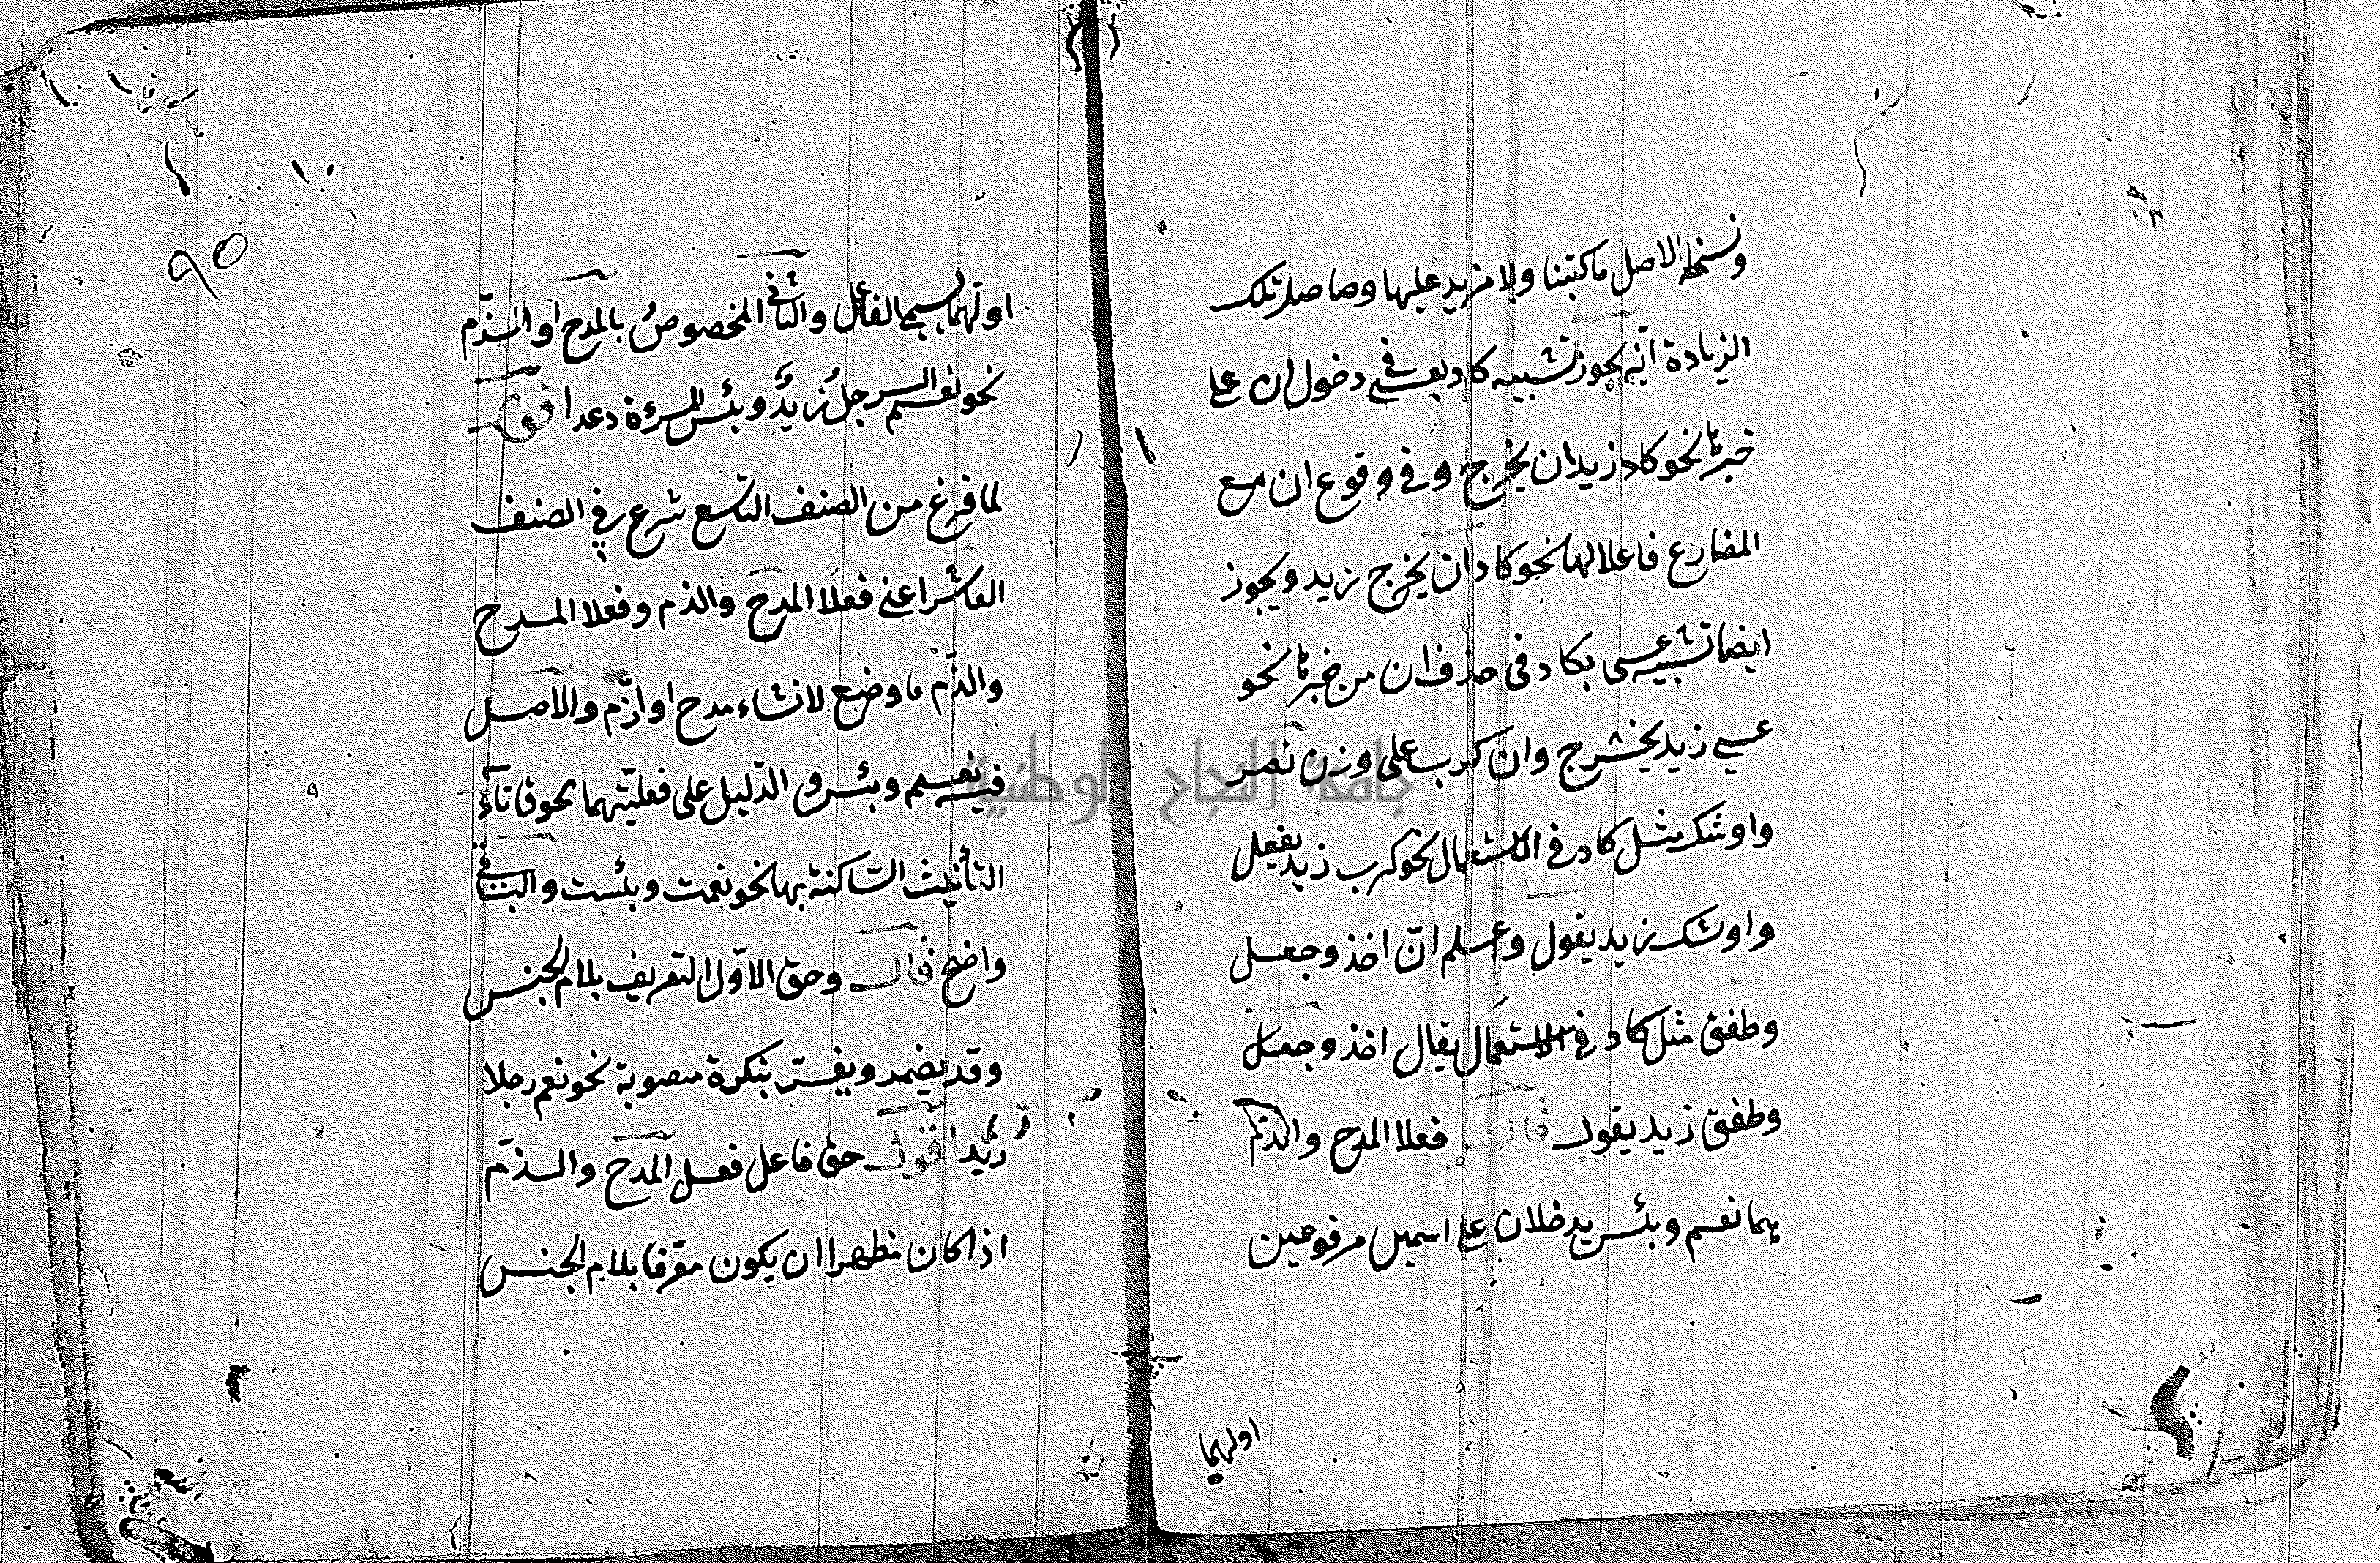 ونسخة الاصل ما كتبنا ولا مزيد عليها وحاصل تلك
الزيادة انه يجوز تشبيه كاد بعسى في دخول ان على
خبرها نحو كاد زيد ان يخرج وفي وقوع ان مع
المضارع فاعلا لها نحو كاد ان يخرج زيد ويجوز
ايضا تشبيه عسى بكاد في حذف ان من خبرها نحو
عسى زيد يخرج وان كرب على وزن نصر
واوشك مثل كاد في الاستعمال نحو كرب زيد يفعل
واوشك زيد يقول وعلم ان اخذ وجعل
وطفق مثل كاد في الاستعمال يقال اخذ وجعل
وطفق زيد يقول قال فعلا المدح والذم
هما نعم وبئس يدخلان على اسمين مرفوعين
اولهما
٩٥
اولهما يسمى الفاعل والثاني المخصوص بالمدح او الذم
نحو نعم الرجل زيد وبئس المرءة دعد اقول
لما فرغ من الصنف التاسع شرع في الصنف
العاشر اعنى فعلا المدح والذم وفعلا المدح
والذم ما وضع لانشاء مدح او ذم والاصل
فيه نعم وبئس والدليل على فعليتهما لحوق تاء
التأنيث الساكنة بهما نحو نعمت وبئست والباقي
واضح قال وحق الاول التعريف بلام الجنس
وقد يضمر ويفسر بنكرة منصوبة نحو نعم رجلا
زيد اقول حق فاعل فعل المدح والذم
اذا كان مظهرا ان يكون معرفا بلام الجنس
جامعة النجاح الوطنية